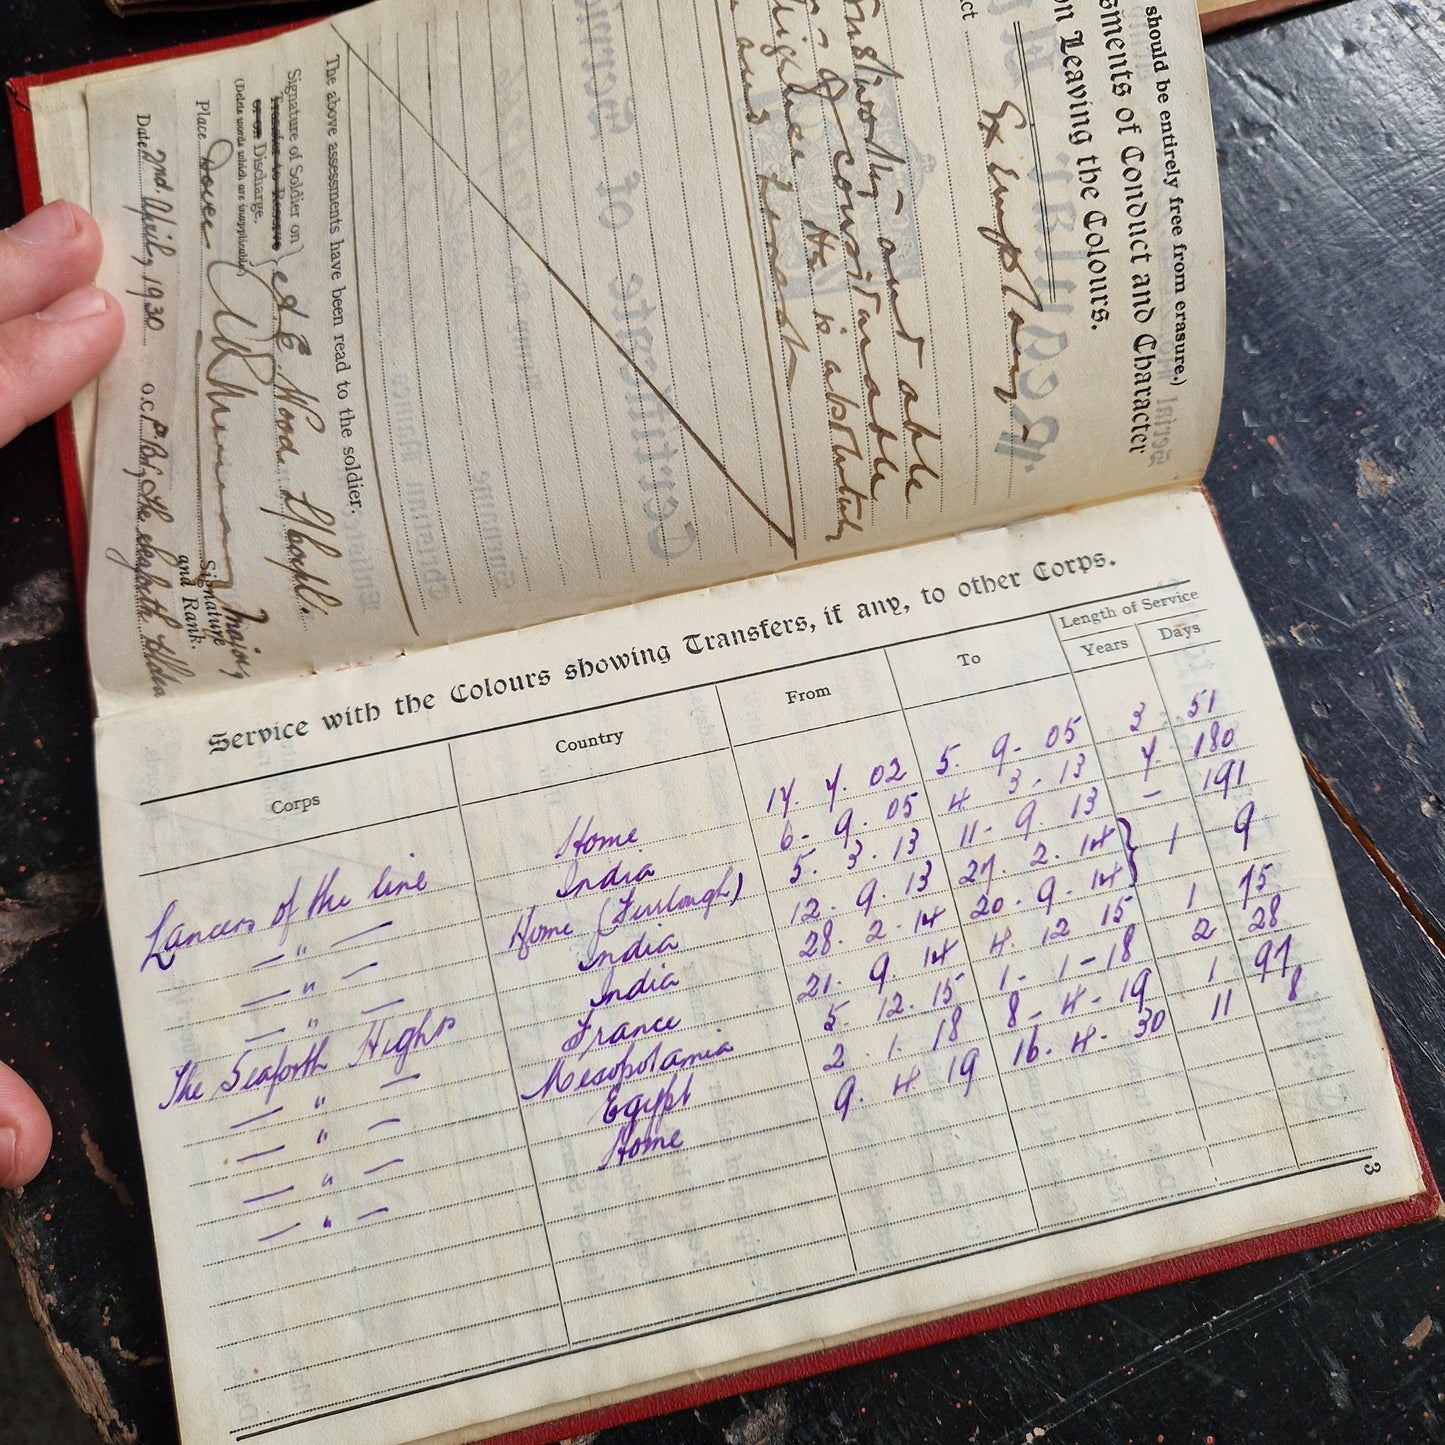 should be entirely free from erasure.)
sments of Conduct and Character
on Leaving the Colours.
Exemplary
and able
considerable
He is absolutely
The above assessments have been read to the soldier.
Signature of Soldier on
Transfer to Reserve
or on Discharge.
(Delete words which are inapplicable)
A E Wood L/Corpl.
Place Dover
Signature
and Rank.
Major
Date 2nd April, 1930 O.C.
Service with the Colours showing Transfers, if any, to other Corps.
Corps Country From To Length of Service
Years Days
Lancers of the line Home 17. 7. 02 5. 9. 05 3 51
— " — India 6. 9. 05 4 3. 13 7 180
— " — Home (Furlough) 5. 3. 13 11. 9. 13 — 191
— " — India 12. 9. 13 27. 2. 14 } 1 9
The Seaforth Highrs India 28. 2. 14 20. 9. 14
— " — France 21. 9. 14 4. 12 15 1 75
— " — Mesopotamia 5. 12. 15 1. 1-18 2 28
— " — Egypt 2. 1. 18 8. 4. 19 1 97
— " — Home 9. 4 19 16. 4. 30 11 8
3